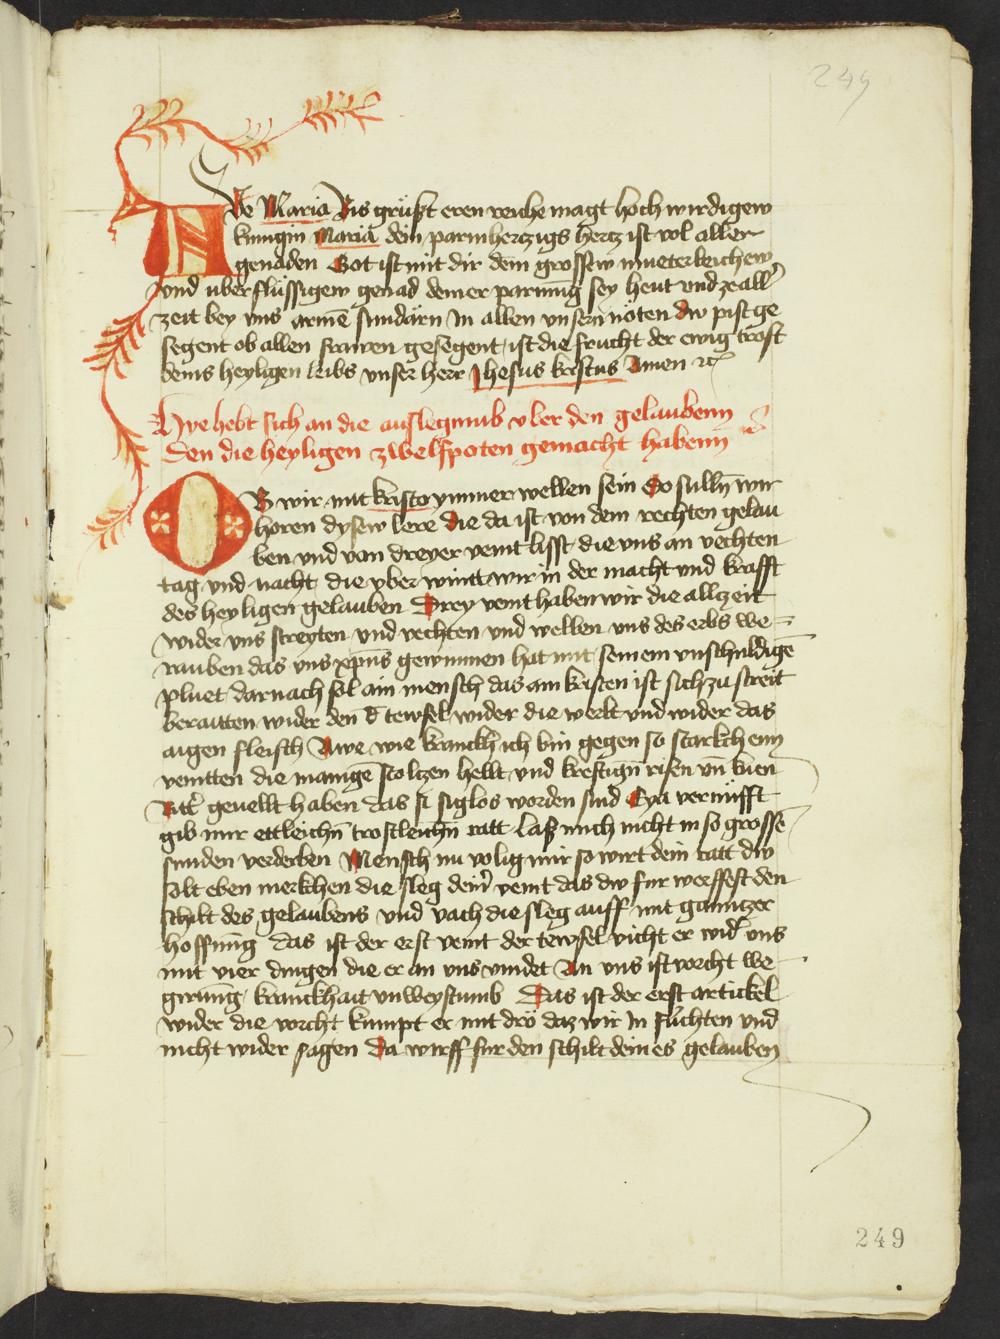 249
Ave Maria Bis grüßt eren reiche magt hoch wirdigew
kunigin Maria dein parmhertzigs hertz ist vol aller
genaden Got ist mit dir dein grossew mueterleichew
vnd uberflüssigew genad deiner parmūg sey heut vnd ze all
zeit bey uns armē sundärn In allen vnsern nöten dw pist ge
segent ob allen frawen gesegent ist die frucht der ewig trost
deins heyligen leibs vnser herr Jhesus kristus Amen
Hye hebt sich an die auslegnub vber den gelaubenn
den die heyligen zwelfpoten gemacht habenn
OB wir mit kristo ymmer wellen sein So sulln̄ wir
horen dysew lere die da ist von dem rechten gelau
ben vnd von dreyer veint lisst die vns an vechten
tag vnd nacht die vber wintt wir in der macht vnd krafft
des heyligen gelauben Drey veint haben wir die allczeit
wider vns streyten vnd vechten vnd wellen vns des erbs we
rauben das vns xp̄us gewunnen hat mit seinem vnschuldigē
pluet darnach sol ain mensch das ain kristen ist sich zu streit
beraitten wider den tewfel wider die werlt vnd wider das
aigen fleisch Awe wie kranckh ich bin gegen so starkchenn
veintten die manigē stoltzen hellt vnd kreftign̄ risen vn̄
geuellt haben das si siglos worden sind Eya vernüfft
gib mir ettleichn̄ trostleichn̄ ratt Laß mich nicht in so grosse
sunden verderben Mensch nu volig mir so wirt dein ratt dw
solt eben merkchen die sleg deinr̄ veint das dw fur werffest den
schilt des gelaubens vnd vach die sleg auff mit ganntzer
hoffnūg das ist der erst veint der tewfel vicht er wid̄ vns
mit vier dingen die er an vns vindet An vns ist vorcht we
girnūg kranckhait vnweystumb Das ist der erst artickel
wider die vorcht kumpt er mit drö daz wir In fürchten vnd
nicht wider sagen Da wirff fur den schilt deines gelauben
249